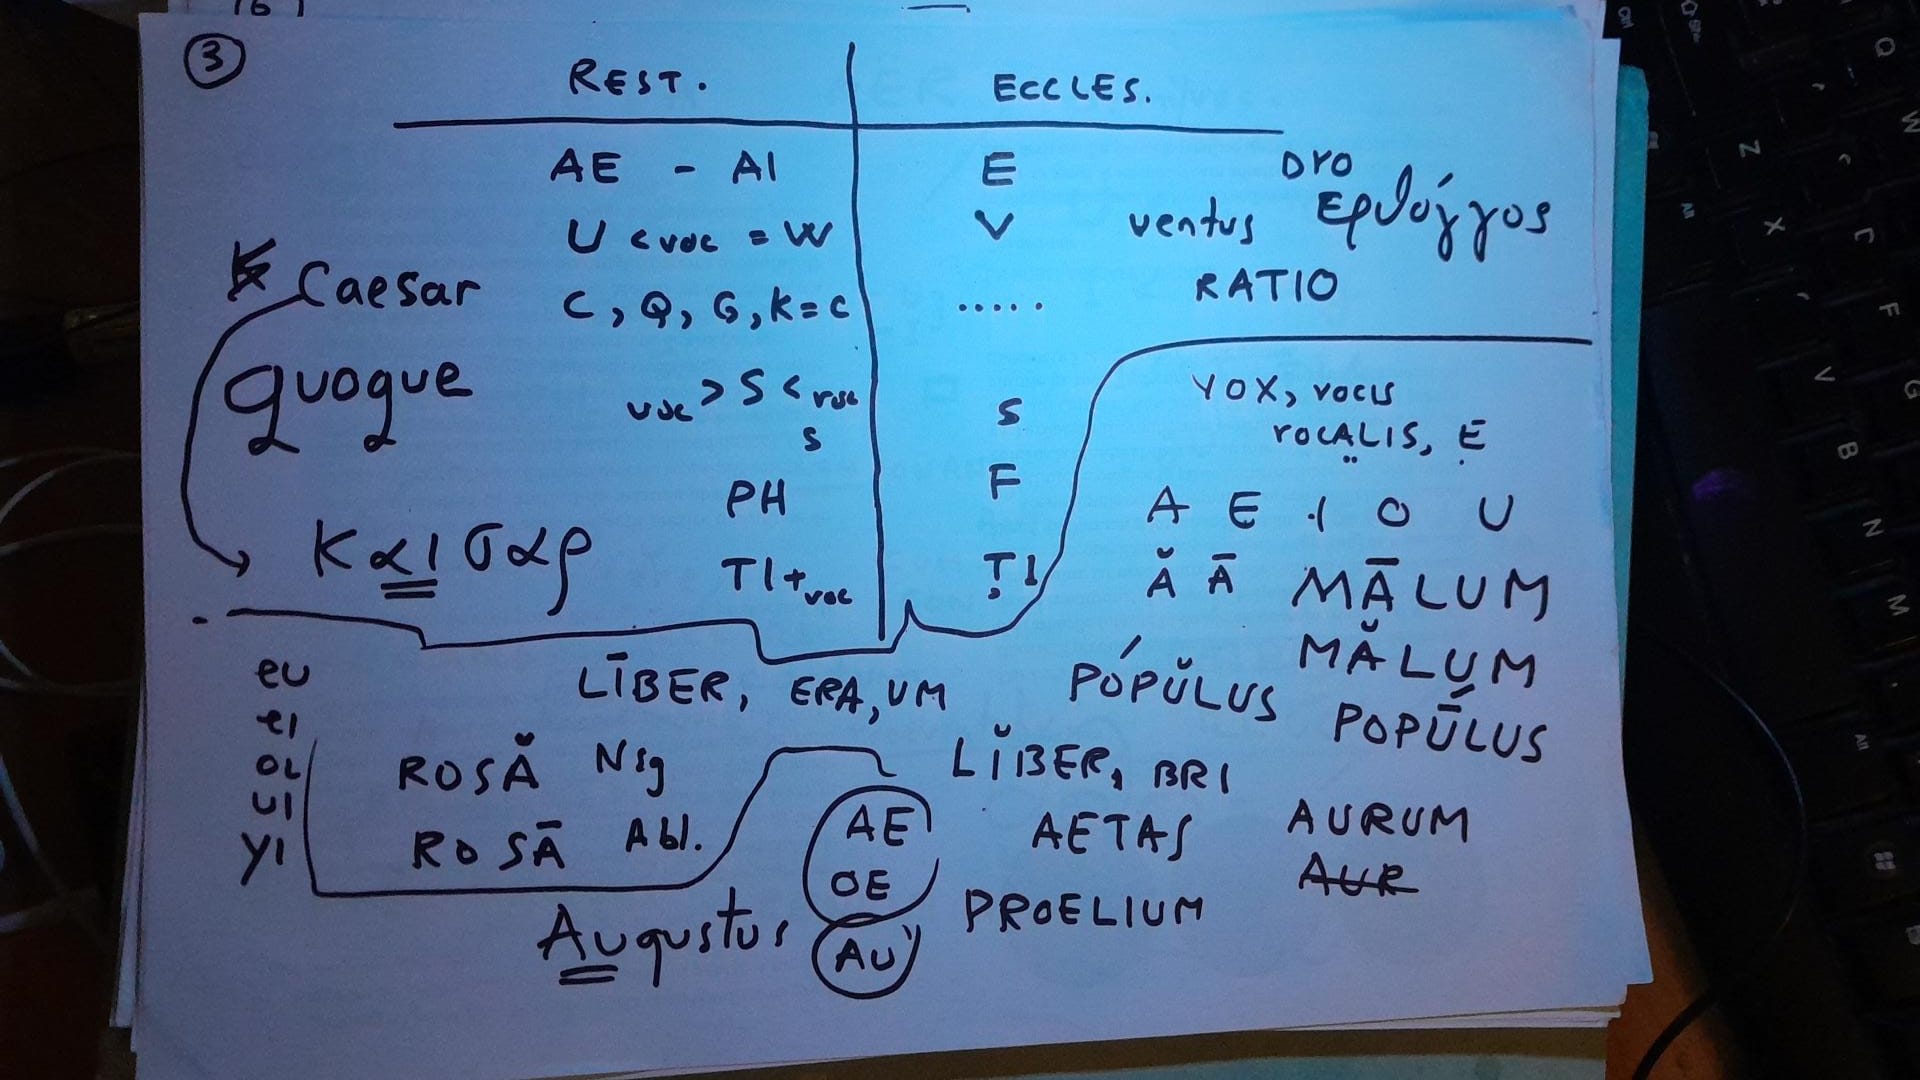 3
REST. ECCLES.
AE - AI E
U < voc = W V
C, Q, G, K = C .....
voc > S < voc S
S
PH F
TI + voc TI
Caesar
quoque
Kαισαρ
DYO
ventus
RATIO
VOX, vocis
VOCALIS, E
A E I O U
Ă Ā MĀLUM
MĂLUM
PÓPŬLUS POPŪLUS
LĪBER, ERA, UM
LĬBER, BRI
eu
ei
oi
ui
yi
ROSĂ Nsg
ROSĀ Abl.
AE AETAS AURUM
OE PROELIUM AUR
Augustus AU